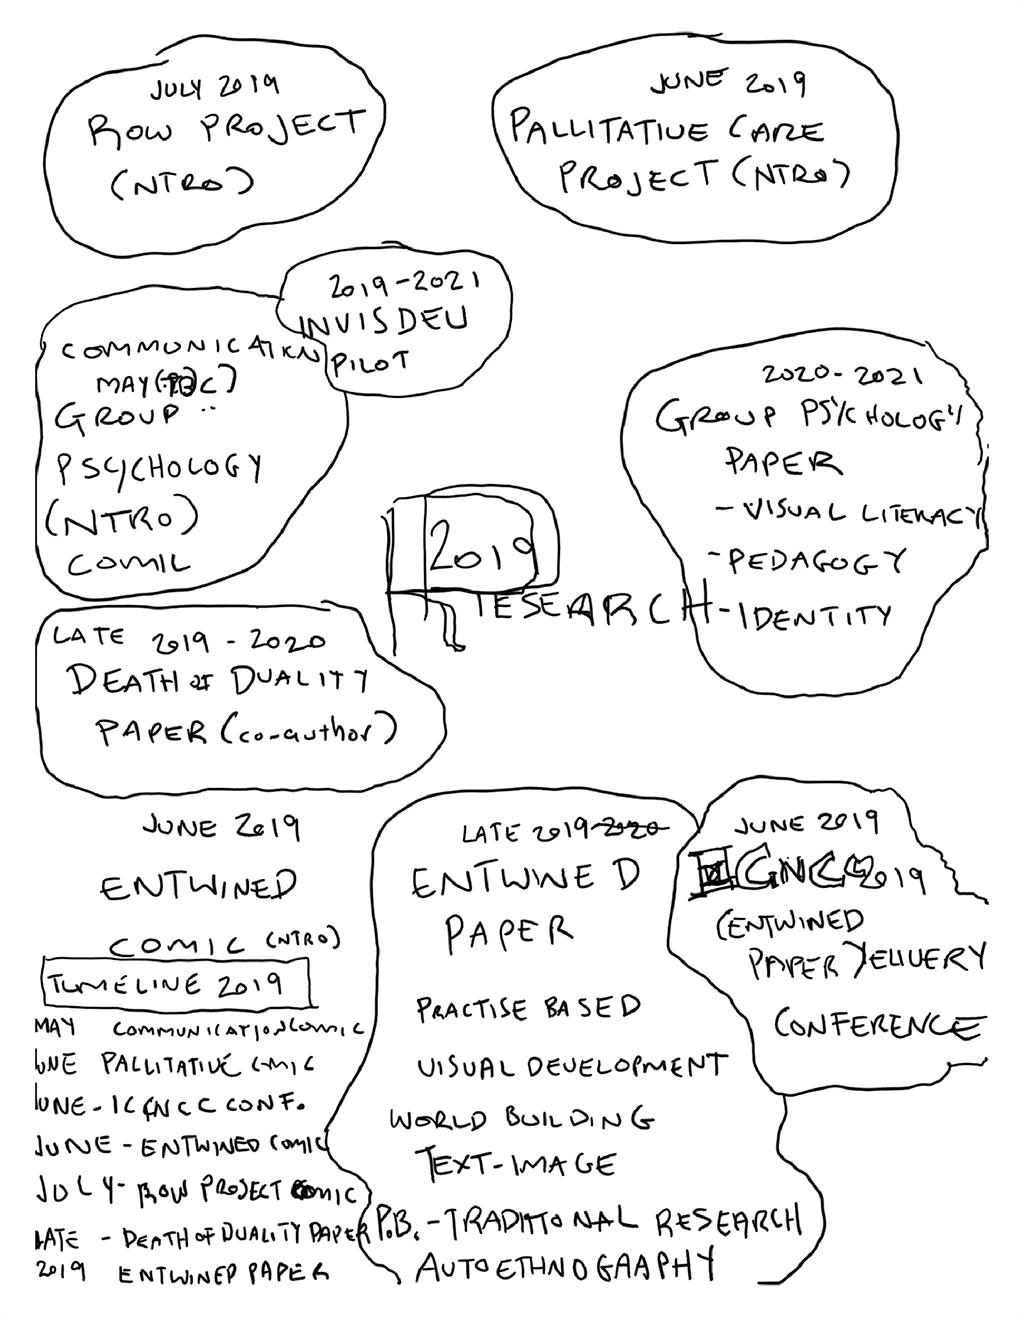 JULY 2019
ROW PROJECT
(NTRO)
JUNE 2019
PALLITATIVE CARE
PROJECT (NTRO)
2019-2021
INVISDEV
PILOT
COMMUNICATION
MAY (TBC)
GROUP
PSYCHOLOGY
(NTRO)
COMIC
2020-2021
GROUP PSYCHOLOGY
PAPER
- VISUAL LITERACY
- PEDAGOGY
- IDENTITY
2019
RESEARCH
LATE 2019 - 2020
DEATH OF DUALITY
PAPER (co-author)
JUNE 2019
ENTWINED
COMIC (NTRO)
LATE 2019-2020
ENTWINED
PAPER
PRACTISE BASED
VISUAL DEVELOPMENT
WORLD BUILDING
TEXT-IMAGE
P.B. - TRADITIONAL RESEARCH
AUTOETHNOGRAPHY
JUNE 2019
IGNCC 2019
(ENTWINED
PAPER) DELIVERY
CONFERENCE
TIMELINE 2019
MAY COMMUNICATION COMIC
JUNE PALLITATIVE COMIC
JUNE - IGNCC CONF.
JUNE - ENTWINED COMIC
JULY - ROW PROJECT COMIC
LATE - DEATH OF DUALITY PAPER
2019 ENTWINED PAPER